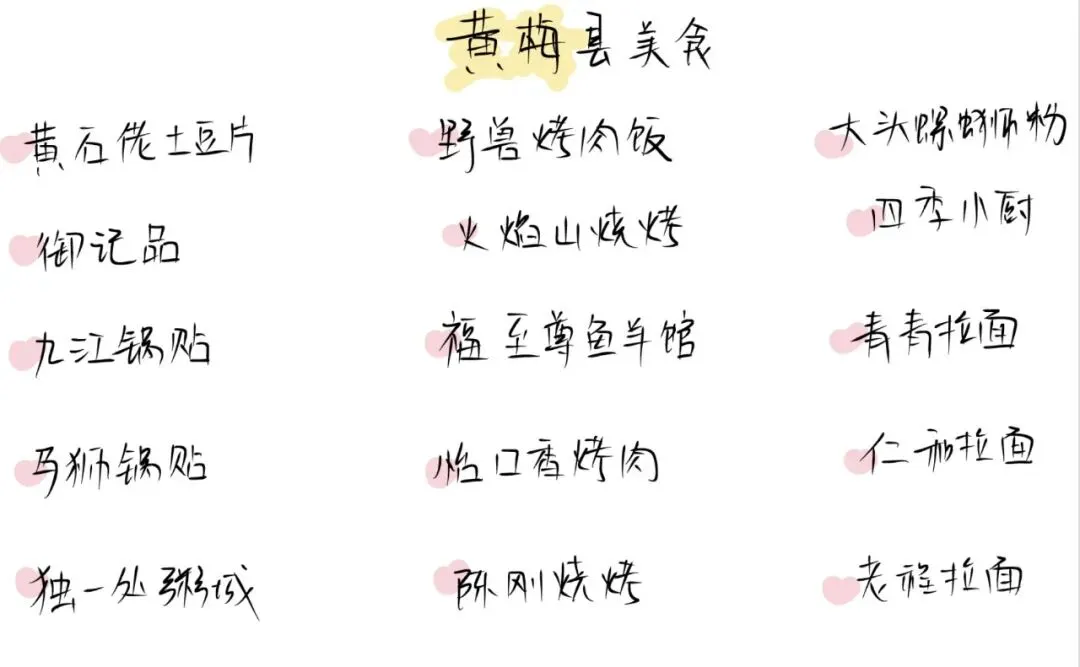 黄梅县美食
黄石佬土豆片
御记品
九江锅贴
马狮锅贴
独一处粥城
野兽烤肉饭
火焰山烧烤
福至尊鱼羊馆
怡口香烤肉
陈刚烧烤
大头螺蛳粉
四季小厨
青青拉面
仁和拉面
老程拉面